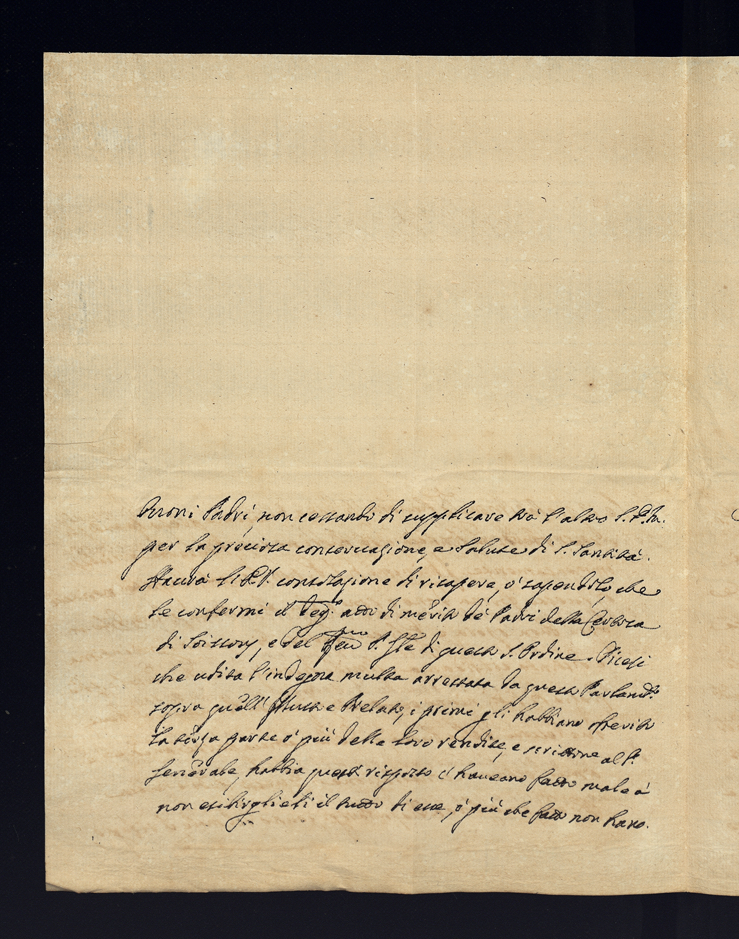 Buoni Padri, non cessando di supplicare trà l'altro S. D. M.
per la preciosa conservazione, e salute di S. Santità.
Haverà S. P. consolazione di risapere, ò sapendolo che
le confermi il atto di merito de Padri della Certosa
di Soissons, e del P. Gle di questo S. Ordine. Dicesi
che udita l'indegna multa arrestata da questo Parlam.to
sopra quell' Illustre Prelato, i primi gli habbiano offerito
la terza parte ò più delle loro rendite, e scrittone al P.
Generale, habbia questi risposto c'haveano fatto male à
non esibirglieli il tutto di esse, ò più che fatto non hano.